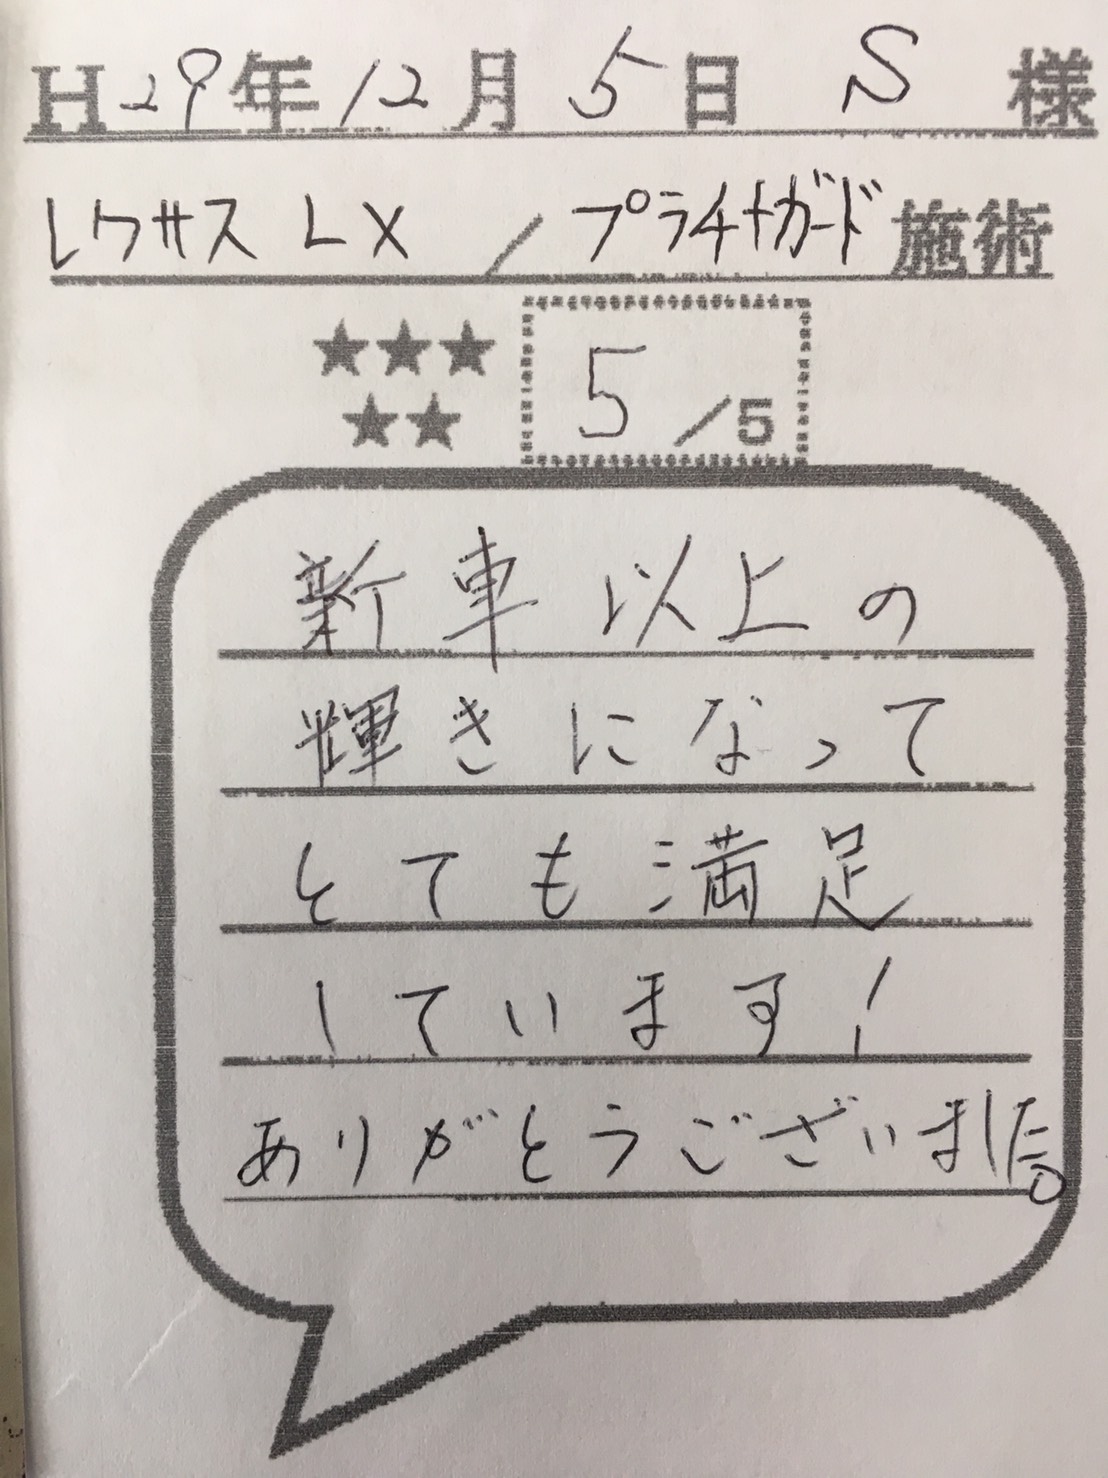 H29年12月5日 S 様
レクサス LX / プラチナガード施術
★★★
★★
5/5
新車以上の
輝きになって
とても満足
しています!
ありがとうございました。